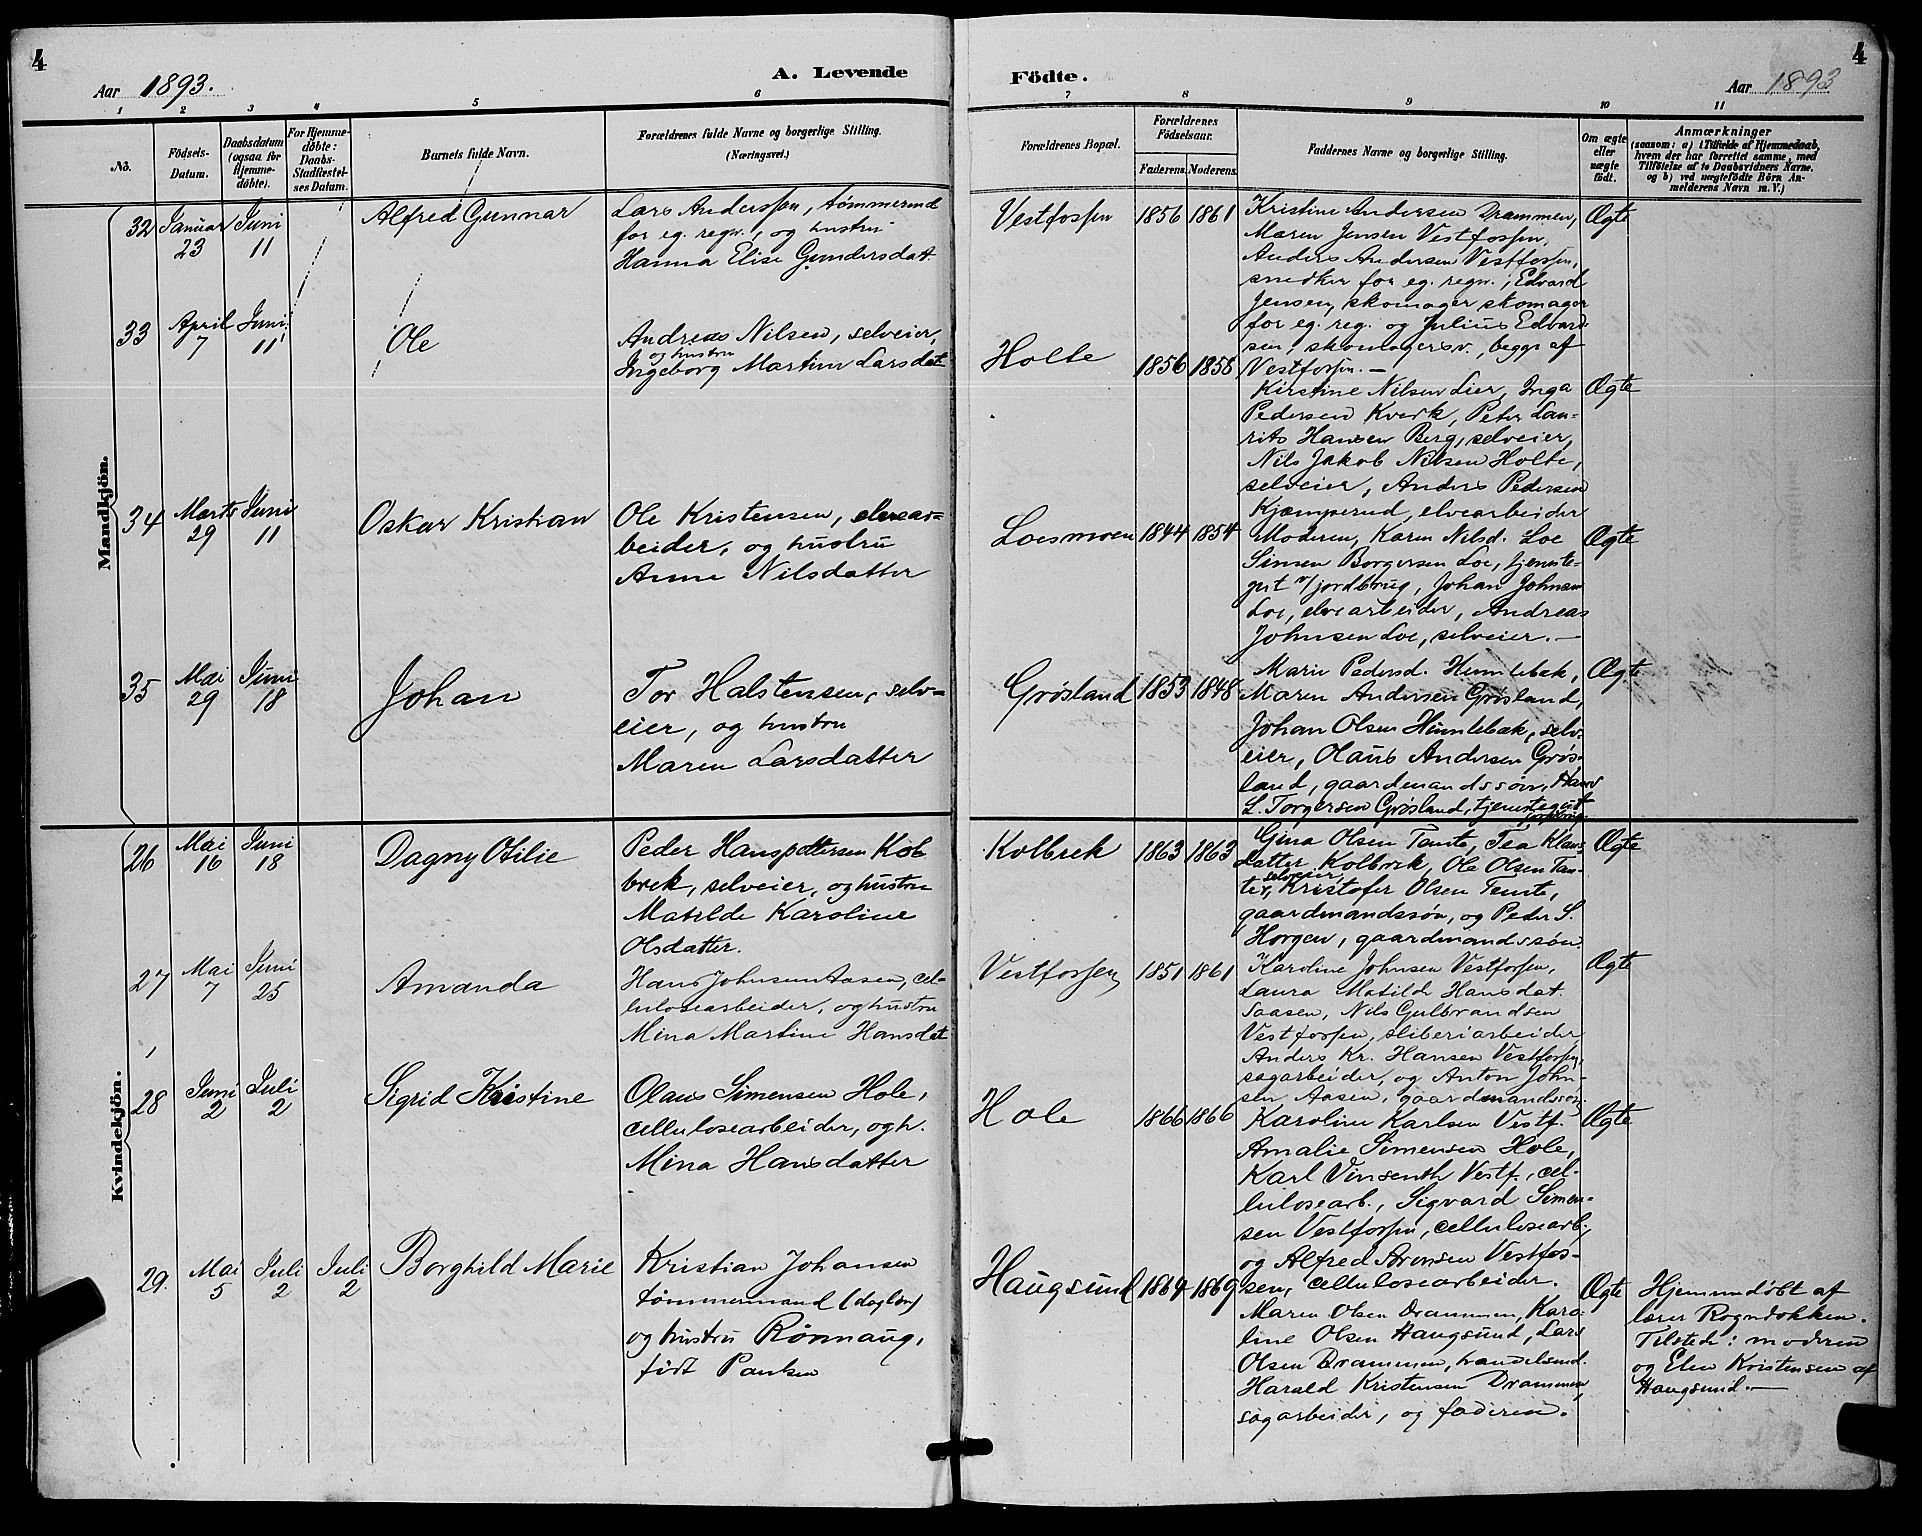 4
Aar 1893.
A. Levende
1 2 3 4 5 6
No.
Födsels-
Datum.
Daabsdatum
(ogsaa for
Hjemme-
døbte).
For Hjemme-
døbte:
Daabs-
Stadfæstel-
ses Datum.
Barnets fulde Navn.
Forældrenes fulde Navne og borgerlige Stilling.
(Næringsvei.)
Mandkjön.
32 Januar 23 Juni 11
Alfred Gunnar
Lars Anderssen, tømmermd
for eg. regn., og hustru
Hanna Elise Gundersdat.
33 April 7 Juni 11
Ole
Andreas Nilsen, selveier,
og hustru
Ingeborg Martine Larsdat.
34 Marts 29 Juni 11
Oskar Kristian
Ole Kristensen, elvear-
beider, og hustru
Anne Nilsdatter
35 Mai 29 Juni 18
Johan
Tor Halstensen, selv-
eier, og hustru
Maren Larsdatter
Kvindekjön.
26 Mai 16 Juni 18
Dagny Otilie
Peder Hanspettersen Kol
brek, selveier, og hustru
Matilde Karoline
Olsdatter.
27 Mai 7 Juni 25
Amanda
Hans Johnsen Aasen, cel-
lulosearbeider, og hustru
Mina Martine Hansdat
28 Juni 2 Juli 2
Sigrid Kristine
Olaus Simensen Hole,
cellulosearbeider, og h.
Mina Hansdatter
29. Mai 5 Juli 2 Juli 2
Borghild Marie
Kristian Johansen
tømmermand (daglön)
og hustru Rönnaug,
født Paulsen
4
Födte.
Aar 1893
7 8 9 10 11
Forældrenes Bopæl.
Forældrenes
Födselsaar.
Faderens. Moderens.
Faddernes Navne og borgerlige Stilling.
Om ægte
eller
uægte
födt.
Anmærkninger
(saasom: a) i Tilfælde af Hjemmedaab,
hvem der har forrettet samme, med
Tilföielse af to Daabsvidners Navne.
og b) ved uægtefödte Börn An-
melderens Navn m. V.)
Vestfossen 1856 1861
Kristine Andersen Drammen,
Maren Jensen Vestfossen,
Anders Andersen Vestfossen,
snedker for eg. regn., Edvard
Jensen, skomager skomager
for eg. reg. og Julius Edvard
sen, skomagersv., begge af
Vestfossen.—
Ægte
Holte 1856 1858
Kirstine Nilsen Lier, Inga
Pedersen Kverk, Peter Lau-
rits Hansen Berg, selveier,
Nils Jakob Nilsen Holte,
selveier, Anders Pedersen
Kjæmperud, elvearbeider
Ægte
Loesmoen 1844 1854
Moderen, Karen Nilsd. Loe
Simen Borgersen Loe, tjeneste-
gut v/jordbrug, Johan Johnsen
Loe, elvearbeider, Andreas
Johnsen Loe, selveier.—
Ægte
Grøsland 1853 1848
Marie Pedersd. Himlebak,
Maren Andersen Grøsland,
Johan Olsen Himlebak, selv-
eier, Olaus Andersen Grøs-
land, gaardmandssøn, Hans
L. Torgersen Grøsland, tjenestegut
Ægte
Kolbrek 1863 1863
Gina Olsen Temte, Tea Klaus
datter Kolbrek, Ole Olsen Tem-
selveier,
te, Kristofer Olsen Temte,
gaardmandssøn, og Peder S.
Horgen, gaardmandssøn.
Ægte
Vestfossen 1851 1861
Karoline Johnsen Vestfossen,
Laura Matilde Hansdat.
Saasen, Nils Gulbrandsen
Vestfossen, sliberiarbeider
Anders Kr. Hansen Vestfossen,
sagarbeider, og Anton John-
sen Aasen, gaardmandssøn.
Ægte
Hole 1866 1866
Karoline Karlsen Vestf.
Amalie Simensen Hole,
Karl Vinsenth Vestf., cel-
lulosearb., Sigvard Simen-
sen Vestfossen, cellulosearb.,
og Alfred Sørensen Vestfos-
sen, cellulosearbeider.
Ægte
Haugsund 1869 1869
Maren Olsen Drammen, Karo-
line Olsen Haugsund, Lars
Olsen Drammen, handelsmd.
Harald Kristensen Drammen,
sagarbeider, og faderen.
Ægte
Hjemmedøbt af
lærer Rogndokken.
Tilstede: moderen
og Elen Kristensen af
Haugsund.—